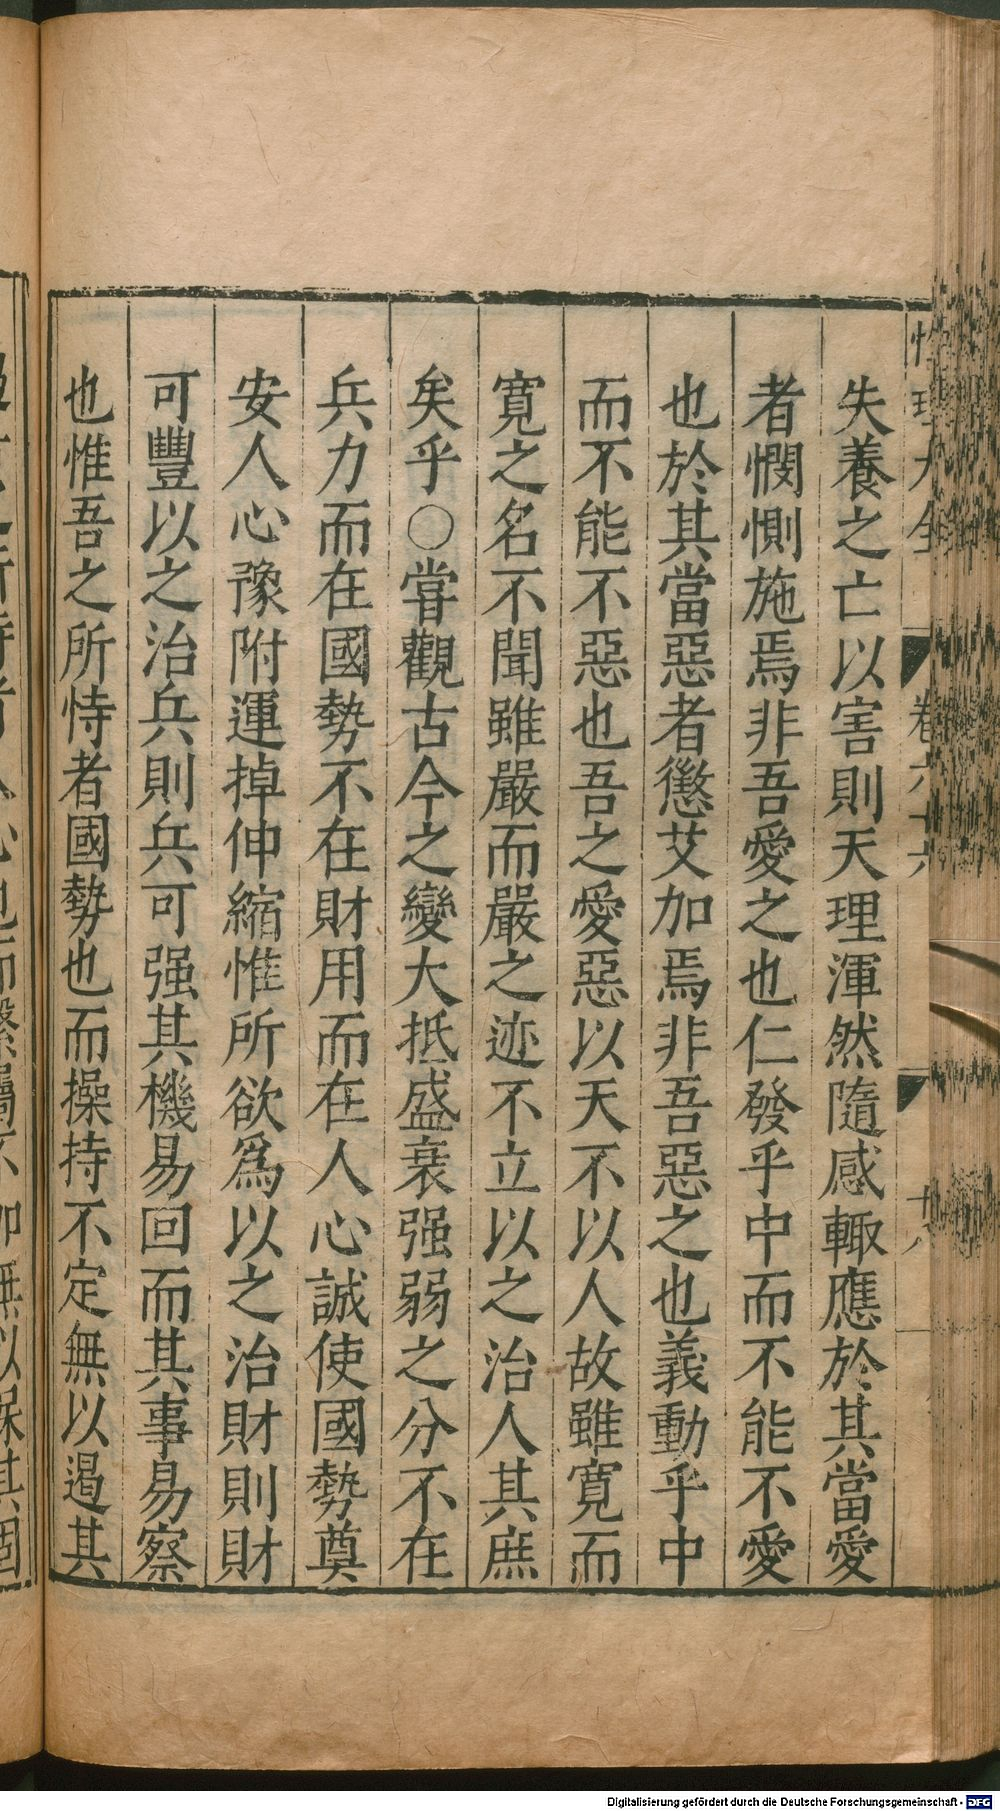 性理大全 卷六十六
失養之亡以害則天理渾然隨感輙應於其當愛
者憫惻施焉非吾愛之也仁發乎中而不能不愛
也於其當惡者懲艾加焉非吾惡之也義動乎中
而不能不惡也吾之愛惡以天不以人故雖寬而
寬之名不聞雖嚴而嚴之迹不立以之治人其庶
矣乎○甞觀古今之變大抵盛衰强弱之分不在
兵力而在國勢不在財用而在人心誠使國勢奠
安人心豫附運掉伸縮惟所欲爲以之治財則財
可豐以之治兵則兵可强其機易回而其事易察
也惟吾之所恃者國勢也而操持不定無以遏其
Digitalisierung gefördert durch die Deutsche Forschungsgemeinschaft - DFG